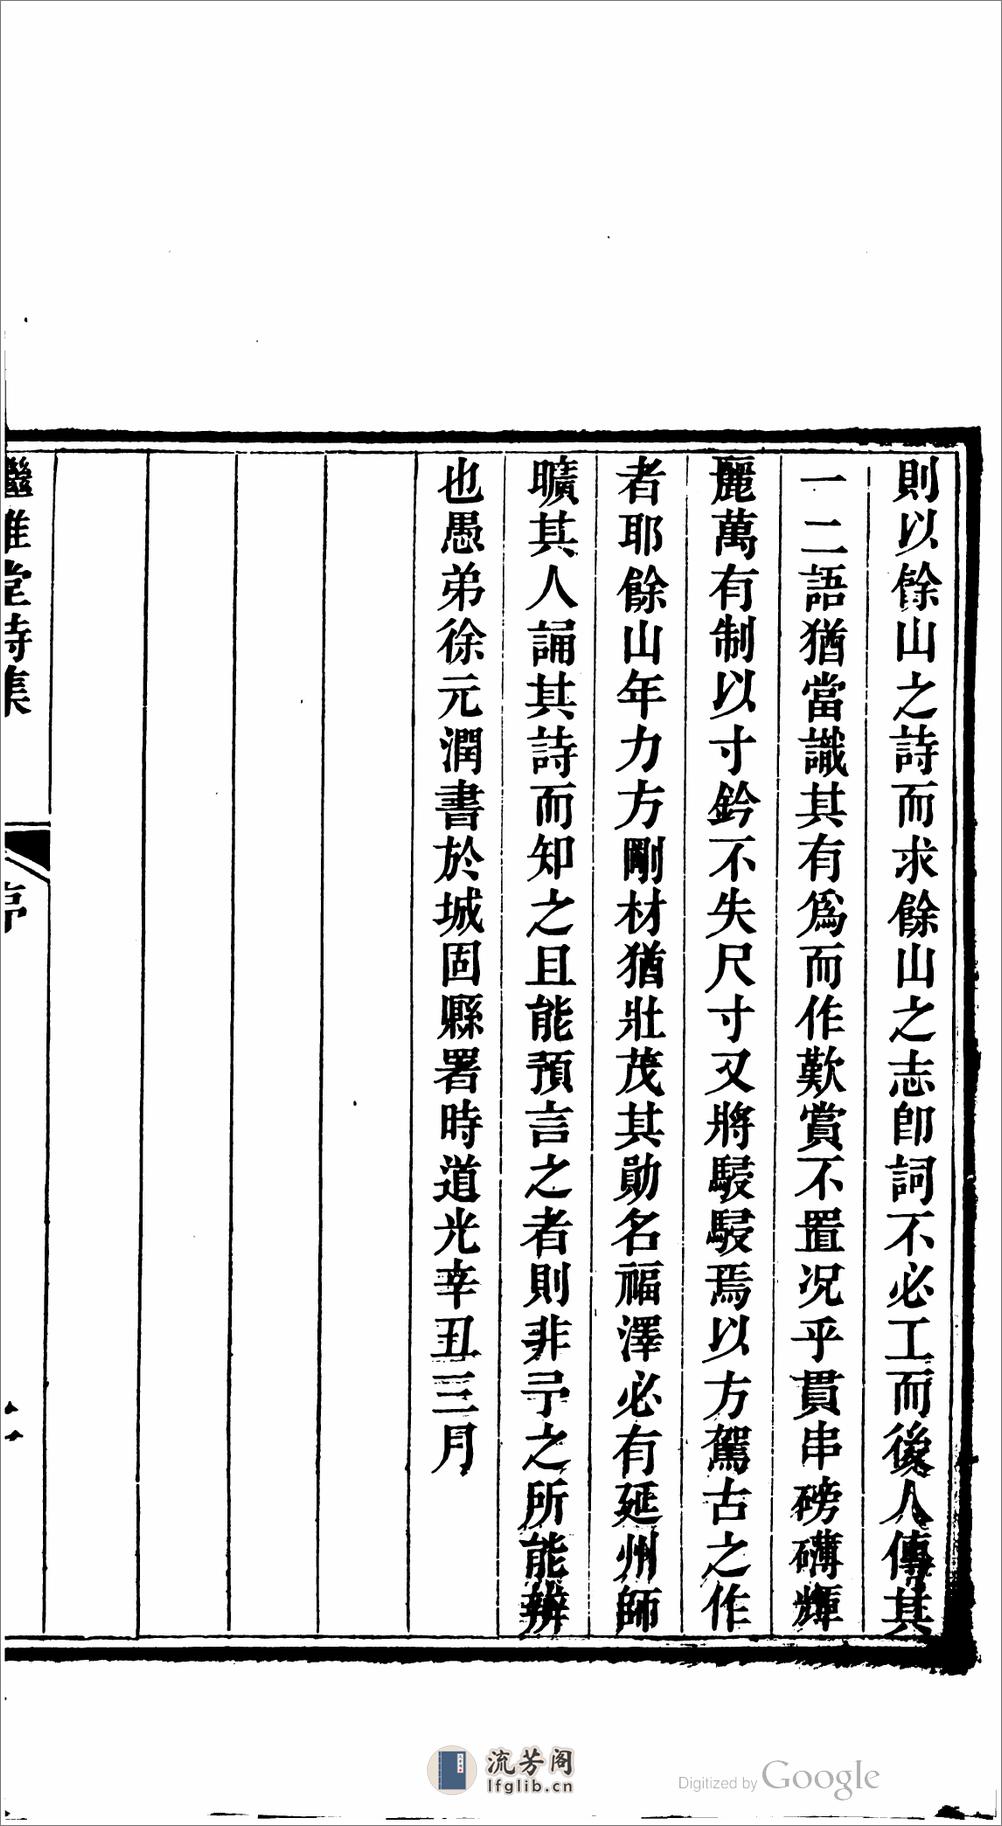 則以餘山之詩而求餘山之志卽詞不必工而後人傳其
一二語猶當識其有爲而作歎賞不置況乎貫串磅礴輝
麗萬有制以寸鈐不失尺寸又將駸駸焉以方駕古之作
者耶餘山年力方剛材猶壯茂其勛名福澤必有延州師
曠其人誦其詩而知之且能預言之者則非予之所能辨
也愚弟徐元潤書於城固縣署時道光辛丑三月
繼雅堂詩集
序
流芳阁
lfglib.cn
Digitized by Google